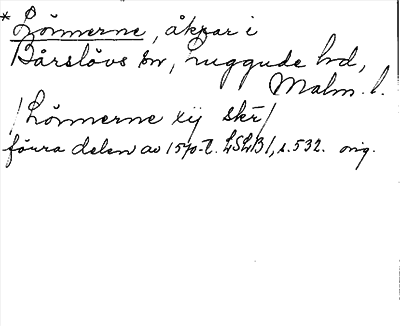 * Lönnerne, åkrar i
Bårslövs sn, Luggude hd,
Malm. l.
/Lönnerne xij skr/
förra delen av 1570-t. LSLB 1, s. 532. orig.